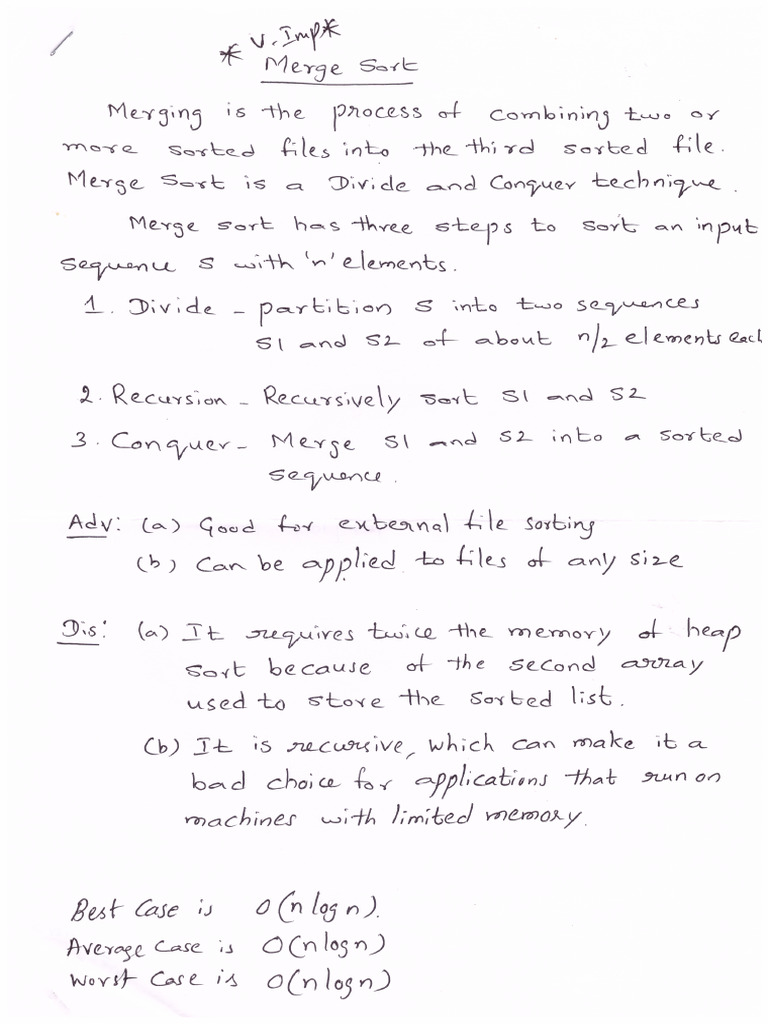 * V. Imp *
Merge Sort
Merging is the process of combining two or
more sorted files into the third sorted file.
Merge Sort is a Divide and Conquer technique.
Merge sort has three steps to sort an input
sequence S with 'n' elements.
1. Divide - partition S into two sequences
S1 and S2 of about n/2 elements each
2. Recursion - Recursively sort S1 and S2
3. Conquer - Merge S1 and S2 into a sorted
sequence.
Adv: (a) Good for external file sorting
(b) Can be applied to files of any size
Dis: (a) It requires twice the memory of heap
sort because of the second array
used to store the sorted list.
(b) It is recursive, which can make it a
bad choice for applications that run on
machines with limited memory.
Best Case is O(n log n).
Average Case is O(n log n)
Worst Case is O(n log n)